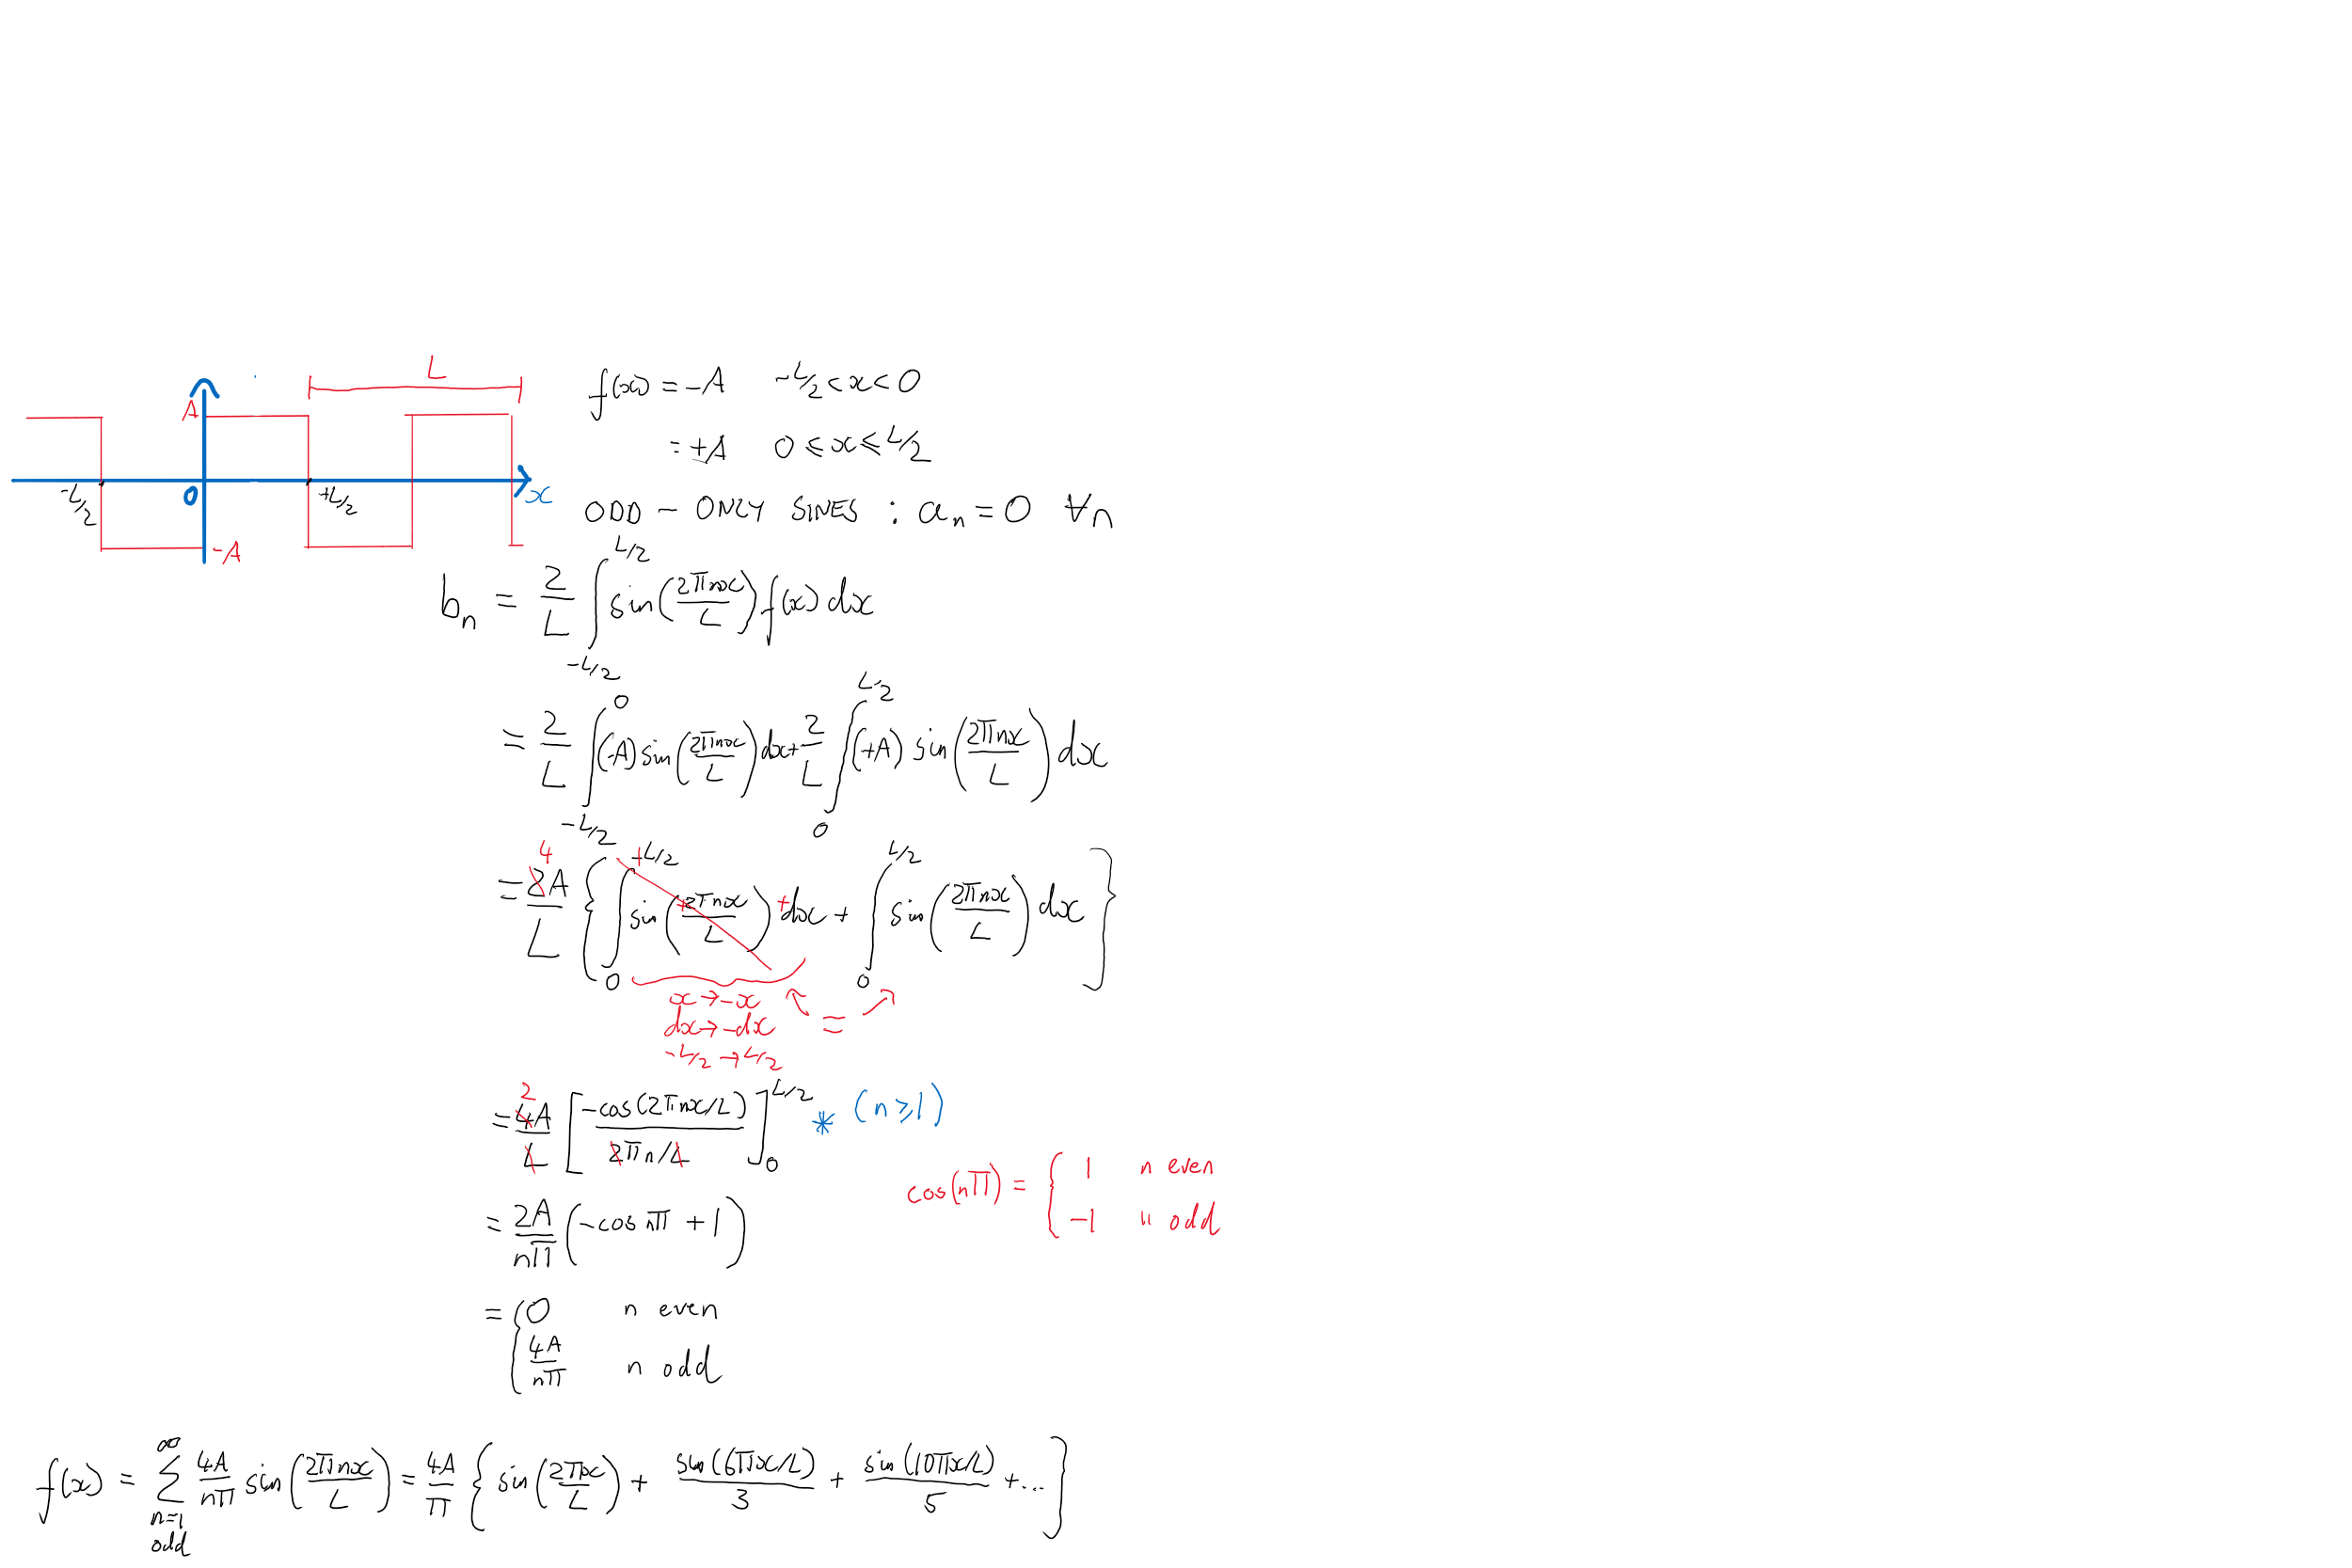 L
A
-L/2
0
+L/2
x
-A
f(x) = -A   -L/2 < x < 0
= +A   0 ≤ x ≤ L/2
ODD - ONLY SINES : aₙ = 0 ∀n
bₙ = 2/L ∫_{-L/2}^{L/2} sin(2πnx/L) f(x) dx
= 2/L ∫_{-L/2}^{0} (-A) sin(2πnx/L) dx + 2/L ∫_{0}^{L/2} (+A) sin(2πnx/L) dx
4
= 2A/L { ∫_{0}^{+L/2} sin(+2πnx/L) + dx + ∫_{0}^{L/2} sin(2πnx/L) dx }
x → -x
dx → -dx   =
-L/2 → L/2
2
= 4A/L [ -cos(2πnx/L) / 2πn/L ]_{0}^{L/2} * (n ≥ 1)
cos(nπ) = { 1   n even
-1   " odd
= 2A/nπ (-cos nπ + 1)
= { 0   n even
4A/nπ   n odd
f(x) = ∑_{n=1 odd}^{∞} 4A/nπ sin(2πnx/L) = 4A/π { sin(2πx/L) + sin(6πx/L)/3 + sin(10πx/L)/5 + ... }